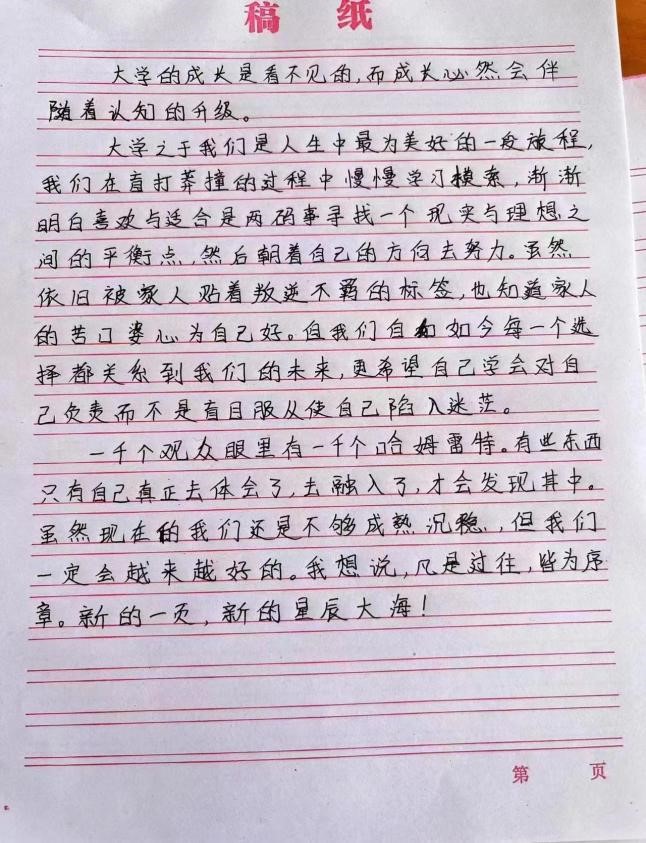 稿 纸
大学的成长是看不见的,而成长必然会伴
随着认知的升级。
大学之于我们是人生中最为美好的一段旅程,
我们在盲打莽撞的过程中慢慢学习摸索,渐渐
明白喜欢与适合是两码事寻找一个现实与理想之
间的平衡点,然后朝着自己的方向去努力。虽然
依旧被家人贴着叛逆不羁的标签,也知道家人
的苦口婆心为自己好。但我们自知如今每一个选
择都关系到我们的未来,更希望自己学会对自
己负责而不是盲目服从使自己陷入迷茫。
一千个观众眼里有一千个哈姆雷特。有些东西
只有自己真正去体会了,去融入了,才会发现其中。
虽然现在的我们还是不够成熟沉稳,但我们
一定会越来越好的。我想说,凡是过往,皆为序
章。新的一页,新的星辰大海!
第 页